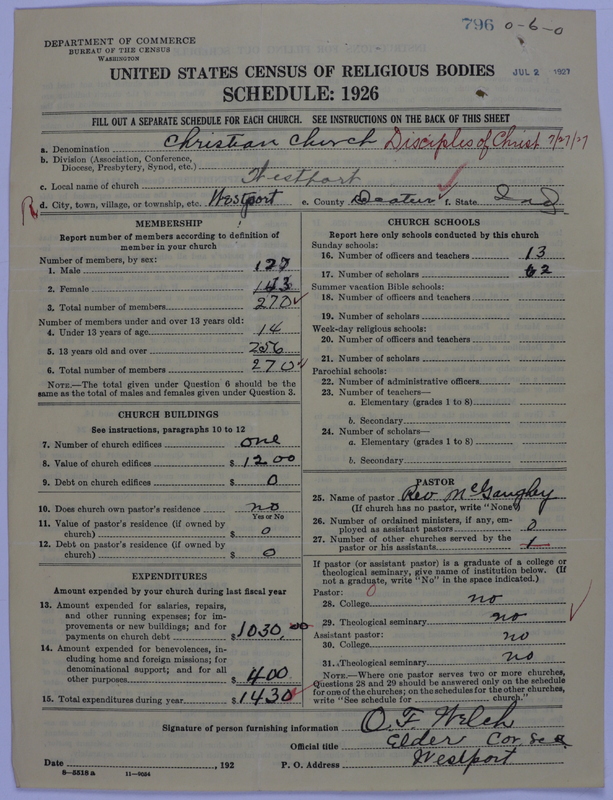 796 0-6-0
DEPARTMENT OF COMMERCE
BUREAU OF THE CENSUS
WASHINGTON
JUL 2 1927
UNITED STATES CENSUS OF RELIGIOUS BODIES
SCHEDULE: 1926
FILL OUT A SEPARATE SCHEDULE FOR EACH CHURCH. SEE INSTRUCTIONS ON THE BACK OF THIS SHEET
a. Denomination Christian Church Disciples of Christ 7/27/27
b. Division (Association, Conference,
Diocese, Presbytery, Synod, etc.)
c. Local name of church Westport
d. City, town, village, or township, etc. Westport e. County Decatur f. State Ind
MEMBERSHIP
Report number of members according to definition of
member in your church
Number of members, by sex:
1. Male 127
2. Female 143
3. Total number of members 270
Number of members under and over 13 years old:
4. Under 13 years of age 14
5. 13 years old and over 256
6. Total number of members 270
NOTE.—The total given under Question 6 should be
the same as the total of males and females given under Question 3.
CHURCH BUILDINGS
See instructions, paragraphs 10 to 12
7. Number of church edifices one
8. Value of church edifices $ 1200
9. Debt on church edifices $ 0
10. Does church own pastor's residence no
Yes or No
11. Value of pastor's residence (if owned by
church) $ 0
12. Debt on pastor's residence (if owned by
church) $ 0
EXPENDITURES
Amount expended by your church during last fiscal year
13. Amount expended for salaries, repairs,
and other running expenses; for im-
provements or new buildings; and for
payments on church debt $ 1030.00
14. Amount expended for benevolences, in-
cluding home and foreign missions; for
denominational support; and for all
other purposes $ 400
15. Total expenditures during year $ 1430
CHURCH SCHOOLS
Report here only schools conducted by this church
Sunday schools:
16. Number of officers and teachers 13
17. Number of scholars 62
Summer vacation Bible schools:
18. Number of officers and teachers
19. Number of scholars
Week-day religious schools:
20. Number of officers and teachers
21. Number of scholars
Parochial schools:
22. Number of administrative officers
23. Number of teachers—
a. Elementary (grades 1 to 8)
b. Secondary
24. Number of scholars—
a. Elementary (grades 1 to 8)
b. Secondary
PASTOR
25. Name of pastor Rev McGaughey
(If church has no pastor, write "None")
26. Number of ordained ministers, if any, em-
ployed as assistant pastors 0
27. Number of other churches served by the
pastor or his assistants 1
If pastor (or assistant pastor) is a graduate of a college or
theological seminary, give name of institution below. (If
not a graduate, write "No" in the space indicated.)
Pastor: 0
28. College no
29. Theological seminary no
Assistant pastor:
30. College no
31. Theological seminary no
NOTE.—Where one pastor serves two or more churches,
Questions 28 and 29 should be answered only on the schedule
for one of the churches; on the schedules for the other churches,
write "See schedule for church."
Signature of person furnishing information O. F. Welch
Official title Elder Cor. Sec
Date , 192 P. O. Address Westport
8—5518 a 11—9554